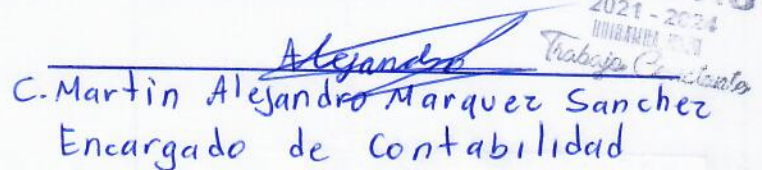 2021 - 2024
Trabajo Constante
Alejandro
C. Martin Alejandro Marquez Sanchez
Encargado de Contabilidad